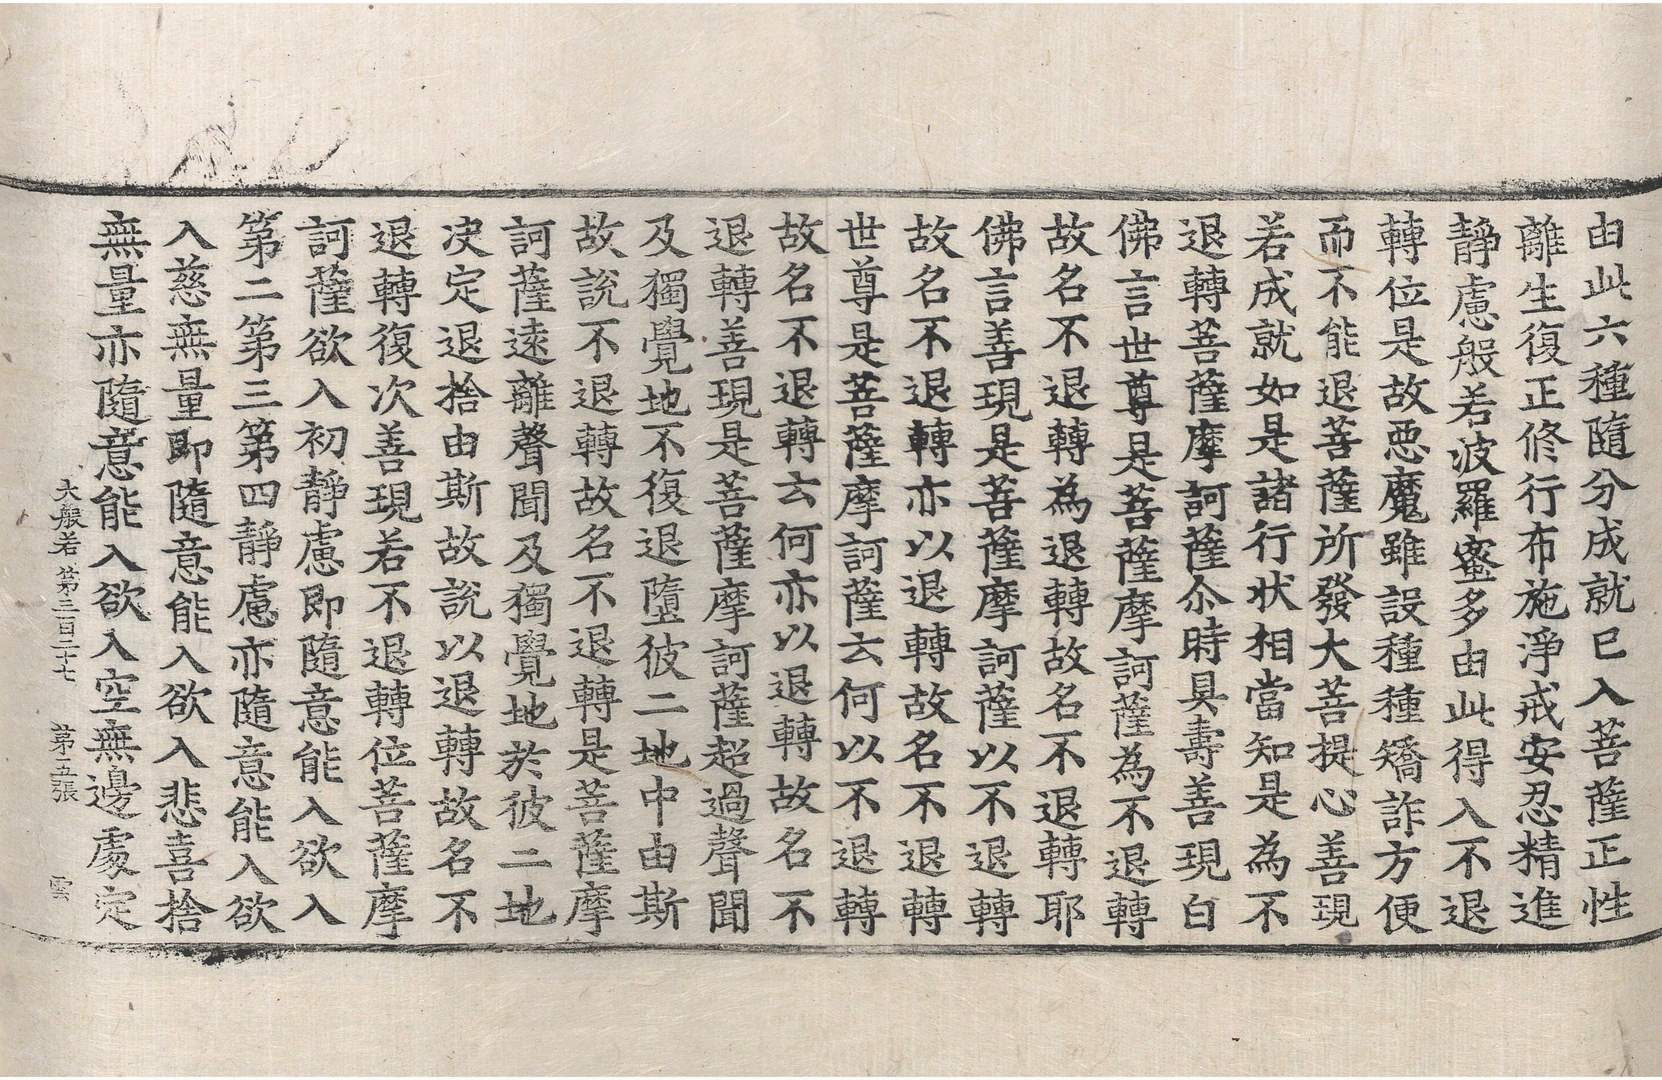 由此六種隨分成就已入菩薩正性
離生復正修行布施淨戒安忍精進
靜慮般若波羅蜜多由此得入不退
轉位是故惡魔雖設種種矯詐方便
而不能退菩薩所發大菩提心善現
若成就如是諸行狀相當知是為不
退轉菩薩摩訶薩尒時具壽善現白
佛言世尊是菩薩摩訶薩為不退轉
故名不退轉為退轉故名不退轉耶
佛言善現是菩薩摩訶薩以不退轉
故名不退轉亦以退轉故名不退轉
世尊是菩薩摩訶薩云何以不退轉
故名不退轉云何亦以退轉故名不
退轉善現是菩薩摩訶薩超過聲聞
及獨覺地不復退墮彼二地中由斯
故說不退轉故名不退轉是菩薩摩
訶薩遠離聲聞及獨覺地於彼二地
决定退捨由斯故說以退轉故名不
退轉復次善現若不退轉位菩薩摩
訶薩欲入初靜慮即隨意能入欲入
第二第三第四靜慮亦隨意能入欲
入慈無量即隨意能入欲入悲喜捨
無量亦隨意能入欲入空無邊處定
大般若 第三百二十七 第五張 雲